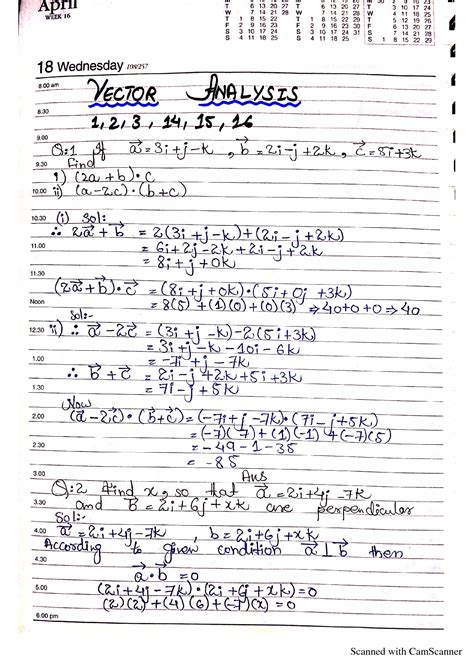 April
WEEK 16
18 Wednesday 108/257
8.00 am
VECTOR ANALYSIS
8.30
1, 2, 3, 14, 15, 16
9.00
Q:1 If a⃗ = 3i+j-k, b⃗ = 2i-j+2k, c⃗ = 5i+3k
9.30 Find
i) (2a+b)·c
10.00 ii) (a-2c)·(b+c)
10.30 (i) Sol:
∴ 2a⃗+b⃗ = 2(3i+j-k)+(2i-j+2k)
11.00 = 6i+2j-2k+2i-j+2k
= 8i+j+0k
11.30
(2a⃗+b⃗)·c⃗ = (8i+j+0k)·(5i+0j+3k)
Noon = 8(5)+(1)(0)+(0)(3) ⇒ 40+0+0 ⇒ 40
Sol:-
12.30 ii) ∴ a⃗-2c⃗ = (3i+j-k)-2(5i+3k)
= 3i+j-k-10i-6k
1.00 = -7i+j-7k
∴ b⃗+c⃗ = 2i-j+2k+5i+3k
1.30 = 7i-j+5k
Now
2.00 (a-2c⃗)·(b⃗+c⃗) = (-7i+j-7k)·(7i-j+5k)
= (-7)(7)+(1)(-1)+(-7)(5)
2.30 = -49-1-35
= -85
3.00 Ans
Q:2 Find x, so that a⃗ = 2i+4j-7k
3.30 and b⃗ = 2i+6j+xk are perpendicular
Sol:-
4.00 a⃗ = 2i+4j-7k, b = 2i+6j+xk
According to given condition a⃗ ⊥ b⃗ then
4.30
a⃗·b⃗ = 0
5.00 (2i+4j-7k)·(2i+6j+xk)=0
(2)(2)+(4)(6)+(-7)(x) = 0
6.00 pm
Scanned with CamScanner